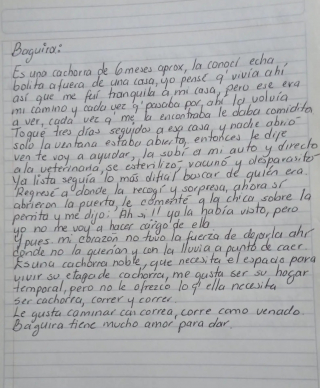 Baguira:
Es una cachorra de 6 meses aprox, la conocí echa
bolita afuera de una casa, yo pensé q' vivía ahí
así que me fui tranquila a mi casa, pero ese era
mi camino y cada vez q' pasaba por ahí la volvía
a ver, cada vez q' me la encontraba le daba comidita
Toqué tres días seguidos a esa casa, y nadie abrió
solo la ventana estaba abierta, entonces le dije
ven te voy a ayudar, la subí a mi auto y directo
a la veterinaria, se esterilizó, vacunó y desparasitó
Ya lista seguía lo más difícil buscar de quién era.
Regresé a donde la recogí y sorpresa, ahora sí
abrieron la puerta, le comenté a la chica sobre la
perrita y me dijo: Ah si!! ya la había visto, pero
yo no me voy a hacer cargo de ella
Y pues mi corazón no tuvo la fuerza de dejarla ahí
donde no la querían y con la lluvia a punto de caer.
Es una cachorra noble, que necesita el espacio para
vivir su etapa de cachorra, me gusta ser su hogar
temporal, pero no le ofrezco lo q' ella necesita
ser cachorra, correr y correr.
Le gusta caminar con correa, corre como venado.
Baguira tiene mucho amor para dar.